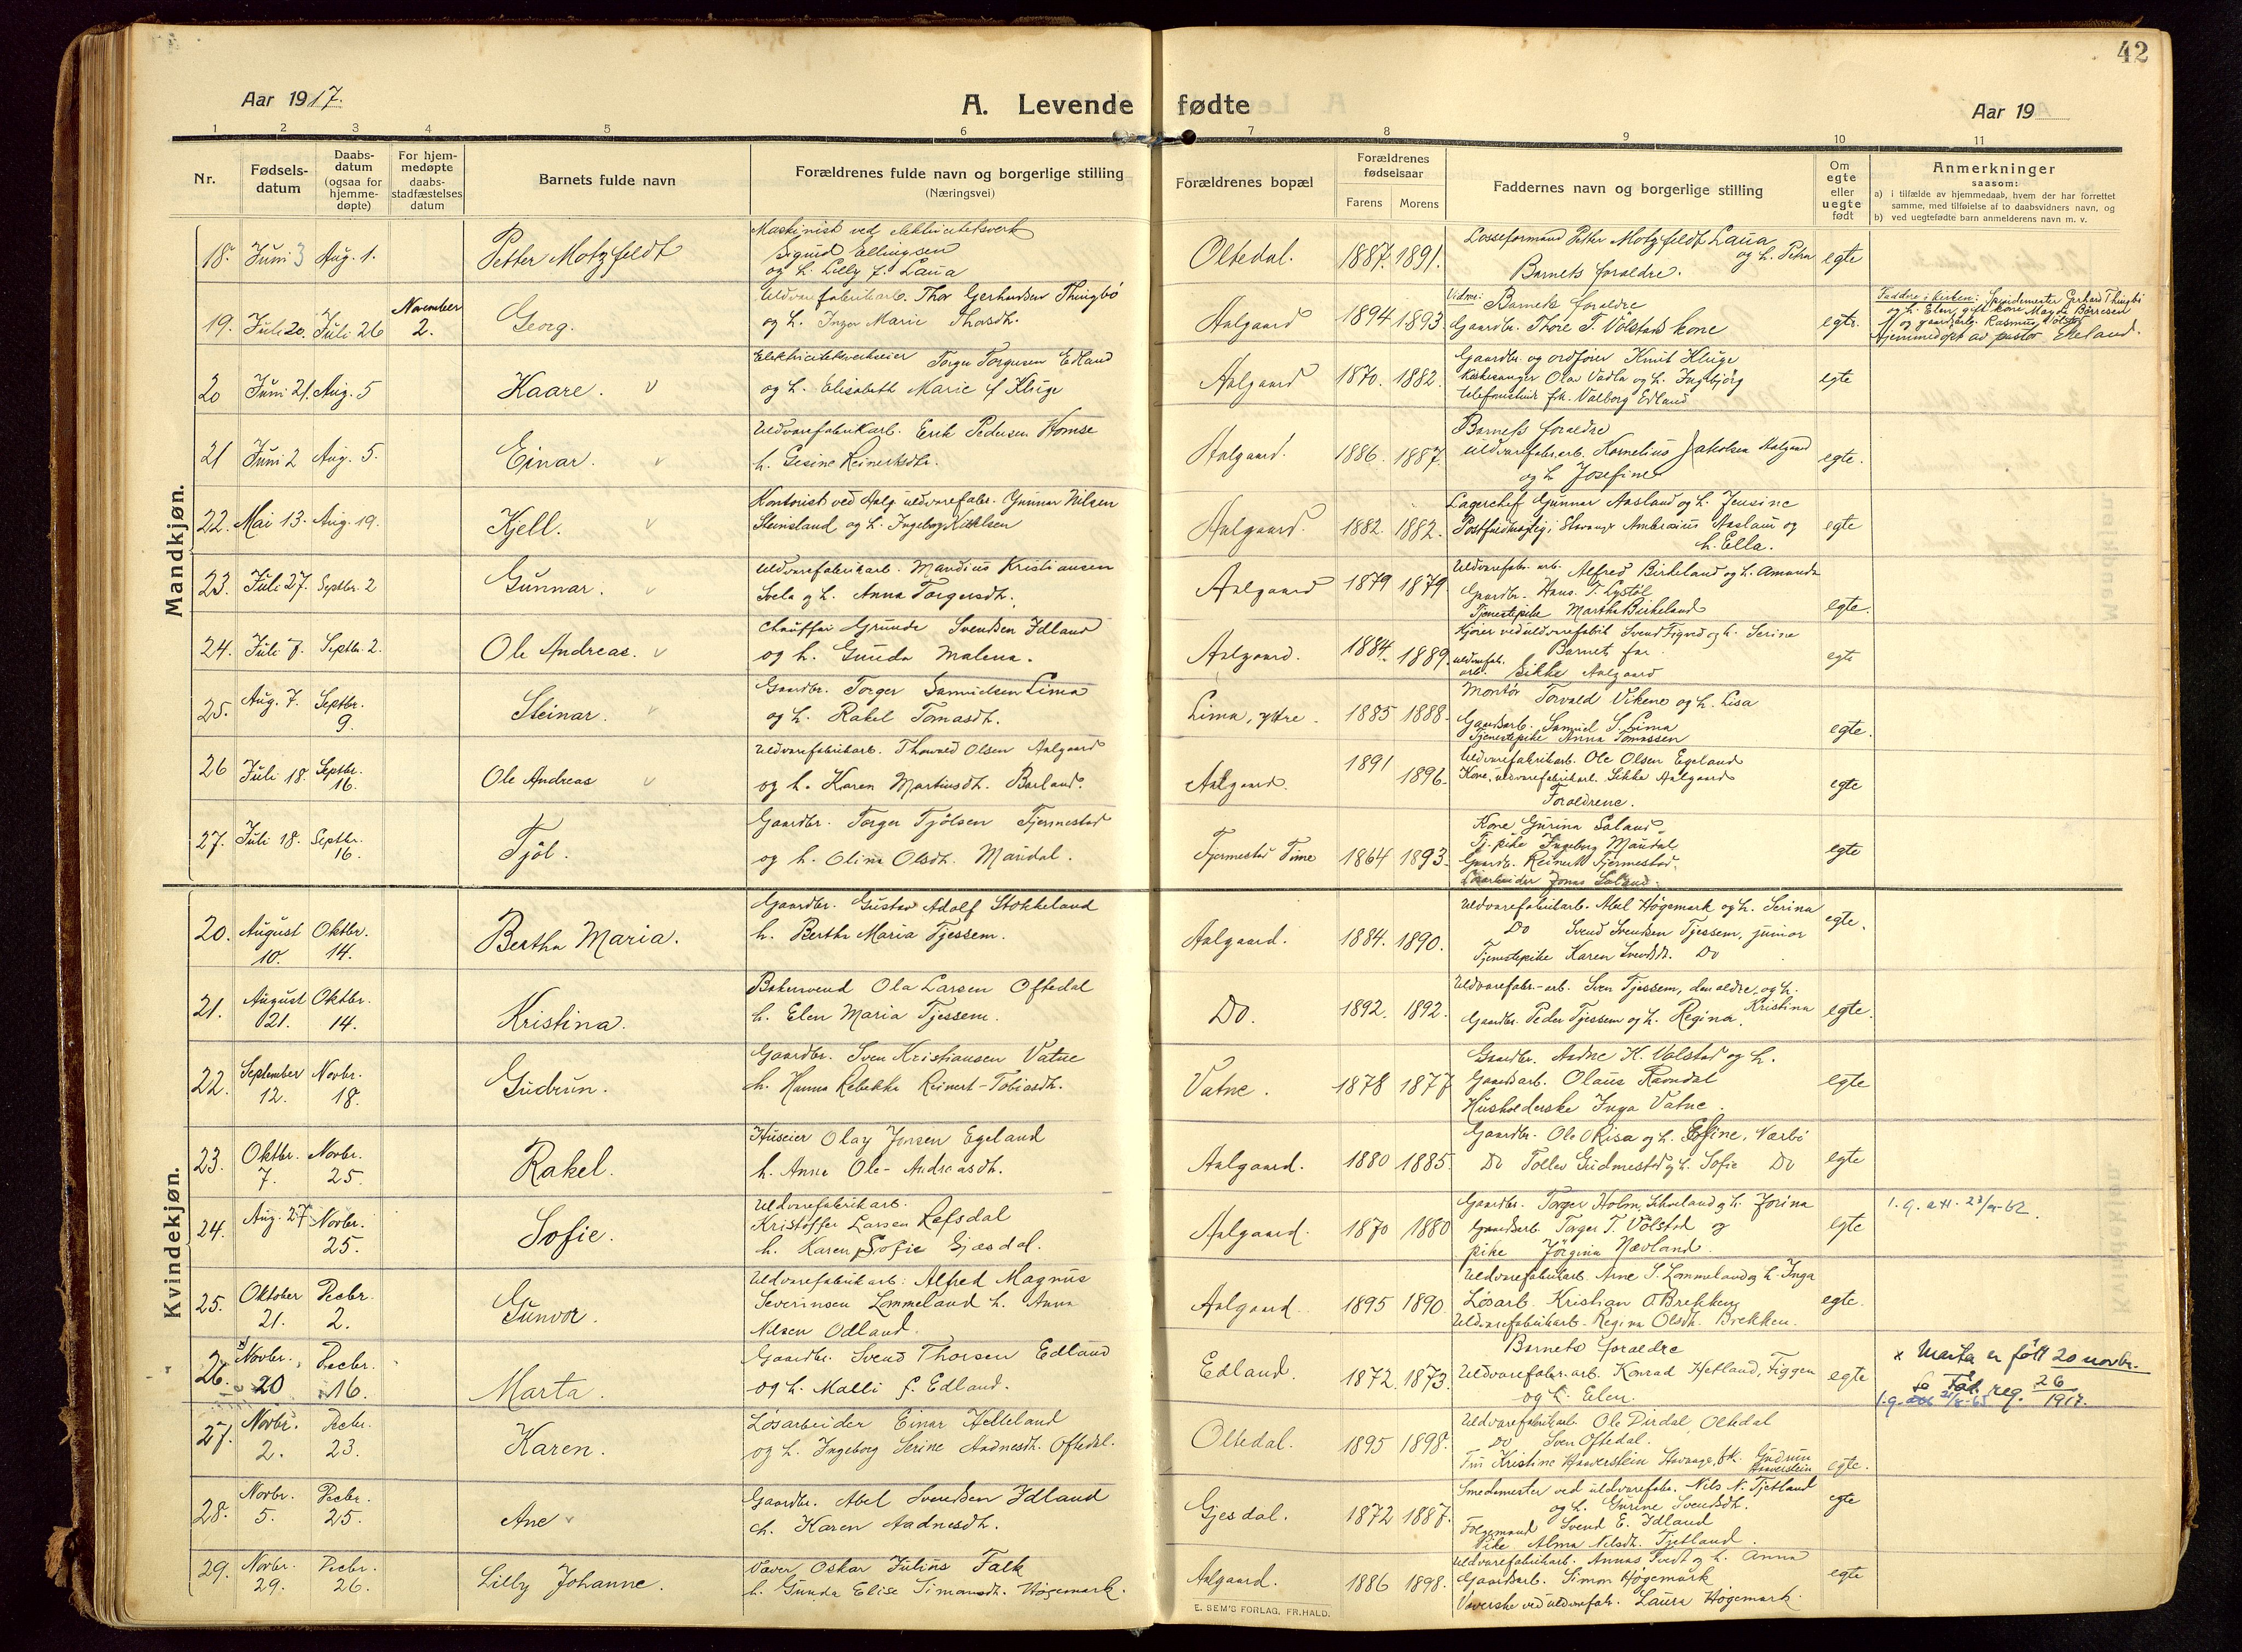 42
Aar 1917.
A. Levende fødte
Aar 19
1 2 3 4 5 6 7 8 9 10 11
Nr.
Fødsels-
datum
Daabs-
datum
(ogsaa for
hjemme-
døpte)
For hjem-
medøpte
daabs-
stadfæstelses
datum
Barnets fulde navn
Forældrenes fulde navn og borgerlige stilling
(Næringsvei)
Forældrenes bopæl
Forældrenes
fødselsaar
Farens Morens
Faddernes navn og borgerlige stilling
Om
egte
eller
uegte
født
Anmerkninger
saasom:
a) i tilfælde av hjemmedaab, hvem der har forrettet
samme, med tilføielse af to daabsvidners navn, og
b) ved uegtefødte barn anmelderens navn m. v.
Mandkjøn.
18. Juni 3 Aug. 1.
Petter Motzfeldt
Maskinist ved elektricitetsverk
Sigurd Ellingsen
og h. Lilly f. Laua
Oltedal. 1887. 1891.
Losseformand Petter Motzfeldt Laua
og h. Petra
Barnets foraldre.
egte
19. Juli 20. Juli 26
November
2.
Georg.
Uldvarefabrikarb. Thor Gerhardsen Thingbø
og h. Inga Marie Thorsdh.
Aalgaard 1894 1893.
Vidner: Barnets foraldre
Gaardbr. Thore T. Völstads kone
egte.
Faddre i kirken: Spindemester Gerhard Thingbö
og h. Elen, gift kone Magda Börresen
og gaardarb. Rasmus Völstad
Hjemmedøpt av pastor Ekeland.
20 Juni 21. Aug. 5
Haare. v
Elektricitetsverkseier Torger Torgersen Edland
og h. Elisabeth Marie f Kluge
Aalgaard 1870. 1882.
Gaardbr. og ordfører Knut Kluge
Kirkesanger Olav Vadla og h. Ingebjörg
telefonistinde frk. Valborg Edland
egte
21 Juni 2 Aug. 5.
Einar. v
Uldvarefabrikarb. Erik Pedersen Homse
h. Gesine Reinertsdtr.
Aalgaard. 1886. 1887.
Barnets foraldre
Uldvarefabr.arb. Kornelius Jakobsen Aalgaard
og h Josefine
egte.
22. Mai 13. Aug. 19.
Kjell. v
Kontorist ved Aalg uldvarefabr. Gunnar Nilsen
Steinsland og h. Ingeborg
Aalgaard. 1882. 1882.
Lagerchef Gunnar Aasland og h. Jensine
Postfuldmægtig i Stavanger Ambrosius Aasland og
h. Ella.
egte
23. Juli 27. Septbr. 2
Gunnar. v
Uldvarefabrikarb. Mandius Kristiansen
Svela og h. Anna Torgersdh.
Aalgaard 1879 1879.
Uldvarefabr. arb. Alfred Birkeland og h. Amanda
Gaardbr. Hans. T. Lystöl
Tjenestepike Martha Birkeland
egte.
24. Juli 7. Septbr. 2.
Ole Andreas. v
Chauffør Grunde Svendsen Idland
og h. Gunda Malena.
Aalgaard. 1884. 1889.
Kjører ved uldvarefabrik Svend Figved og h. Serine
Barnets far.
uldvarefab.
arb. Sikke Aalgaard
egte
25. Aug. 7. Septbr.
9.
Steinar. v
Gaardbr. Torger Samuelsen Lima
og h. Rakel Tomasdh.
Lima, ytre. 1885 1888.
Montör Torvald Vikene og h. Lisa
Gaardsarb. Samuel S. Lima
Tjenestepike Anna Tomassen
egte.
26 Juli 18. Septbr.
16.
Ole Andreas v
Uldvarefabrikarb. Thorvald Olsen Aalgaard
og h. Karen Martinusdh. Borland.
Aalgaard. 1891 1896.
Uldvarefabrikarb. Ole Olsen Egeland
Kone, uldvarefabrikarb. Sikke Aalgaard
Foraldrene.
egte
27. Juli 18. Septbr.
16.
Tjöl.
Gaardbr. Torger Tjölsen Fjermestad
og h. Olina Olsdh. Maudal.
Fjermestad Time 1864 1893.
Kone Gurina Saland
Tj. pike Ingeborg Maudal
Gaardb. Reinert Fjermestad.
Løsarbeider Jonas Saland.
egte
Kvindekjøn.
20. August Oktbr.
10. 14.
Bertha Maria.
Gaardbr. Gustav Adolf Stokkeland
h. Bertha Maria Tjessem.
Aalgaard. 1884. 1890.
Uldvarefabrikarb. Abel Högemark og h. Serina
Do Svend Svendsen Tjessem, junior
Tjenestepike Karen Svendsdh. Do
egte.
21. August Oktbr.
21. 14.
Kristina.
Bakersvend Ola Larsen Oftedal
h. Elen Maria Tjessem.
Do. 1892. 1892.
Uldvarefabr.-arb. Sven Tjessem, den aldre, og h.
Kristina
Gaardbr. Peder Tjessem og h. Regina.
egte.
22. September Novbr.
12. 18.
Gudrun.
Gaardbr. Sven Kristiansen Vatne
h. Hanna Rebekka Reinert-Tobiasdh.
Vatne. 1878 1877
Gaardbr. Andne K. Valstad og h.
Gaardsarb. Olaus Ravndal
Husholderske Inga Vatne.
egte
23. Oktbr. Novbr.
7. 25.
Rakel.
Huseier Olay Jensen Egeland
h. Anne Ole-Andreasdh.
Aalgaard. 1880 1885.
Gaardbr. Ole O Risa og h. Eline, Nærbö
Do Tollev Gudmestad og h. Sofie Do
egte
24. Aug. 27 Novbr.
25.
Sofie.
Uldvarefabrikarb.
Kristoffer Larsen Refsdal
h. Karen Sofie Gjæsdal.
Aalgaard. 1870 1880
Gaardbr. Torger Holm, og h. Jorina
Gaardsarb. Torger T. Völstad og
pike Jörgina Nævland.
egte
25. Oktober Decbr.
21. 2.
Gunvor.
Uldvarefabrikarb: Alfred Magnus
Severinsen Lommeland h. Anna
Nilsen Odland.
Aalgaard. 1895 1890.
Uldvarefabrikarb. Arne S. Lommeland og h. Inga
Løsarb. Kristian O Brekken
Uldvarefabrikarb. Regina Olsdh. Brekken.
egte.
26. x Novbr. Decbr.
20 16.
Marta.
Gaardbr. Svend Thorsen Edland
og h. Malli f. Edland.
Edland. 1872. 1873.
Barnets foraldre
Uldvarefabr.arb. Konrad Hetland, Figgen
og h. Elen.
egte
x Marta er fött 20 novbr.
26
1917.
27. Novbr. Decbr.
2. 23.
Karen.
Løsarbeider Einar Helleland
og h. Ingeborg Serine Aadnesdh. Oftedal.
Oltedal. 1895 1898.
Uldvarefabrikarb. Ole Dirdal, Oltedal
Do Sven Oftedal.
Fru Kristine Haaverstein Stavanger, frk. Gudrun
Haaverstein
egte.
28. Novbr. Decbr.
5. 25.
Ane
Gaardbr. Abel Svendsen Idland
h. Karen Aadnesdh.
Gjesdal. 1872 1887.
Smedemester ved uldvarefabr. Nils N. Tjetland
og h. Gurine Svendsdh.
Folgemand Svend E. Idland
Pike Alma Nilsdh. Tjetland.
egte
29. Novbr. Decbr.
29. 26.
Lilly Johanne.
Væver Oskar Julius Falk
h. Gunda Elise Simonsdh. Högemark.
Aalgaard. 1886 1898.
Uldvarefabrikarb. Annas Tvedt og h. Anna
Gaardsarb. Simon Högemark
Væverske ved uldvarefabr. Laura Högemark.
egte
E. SEM'S FORLAG, FR.HALD.